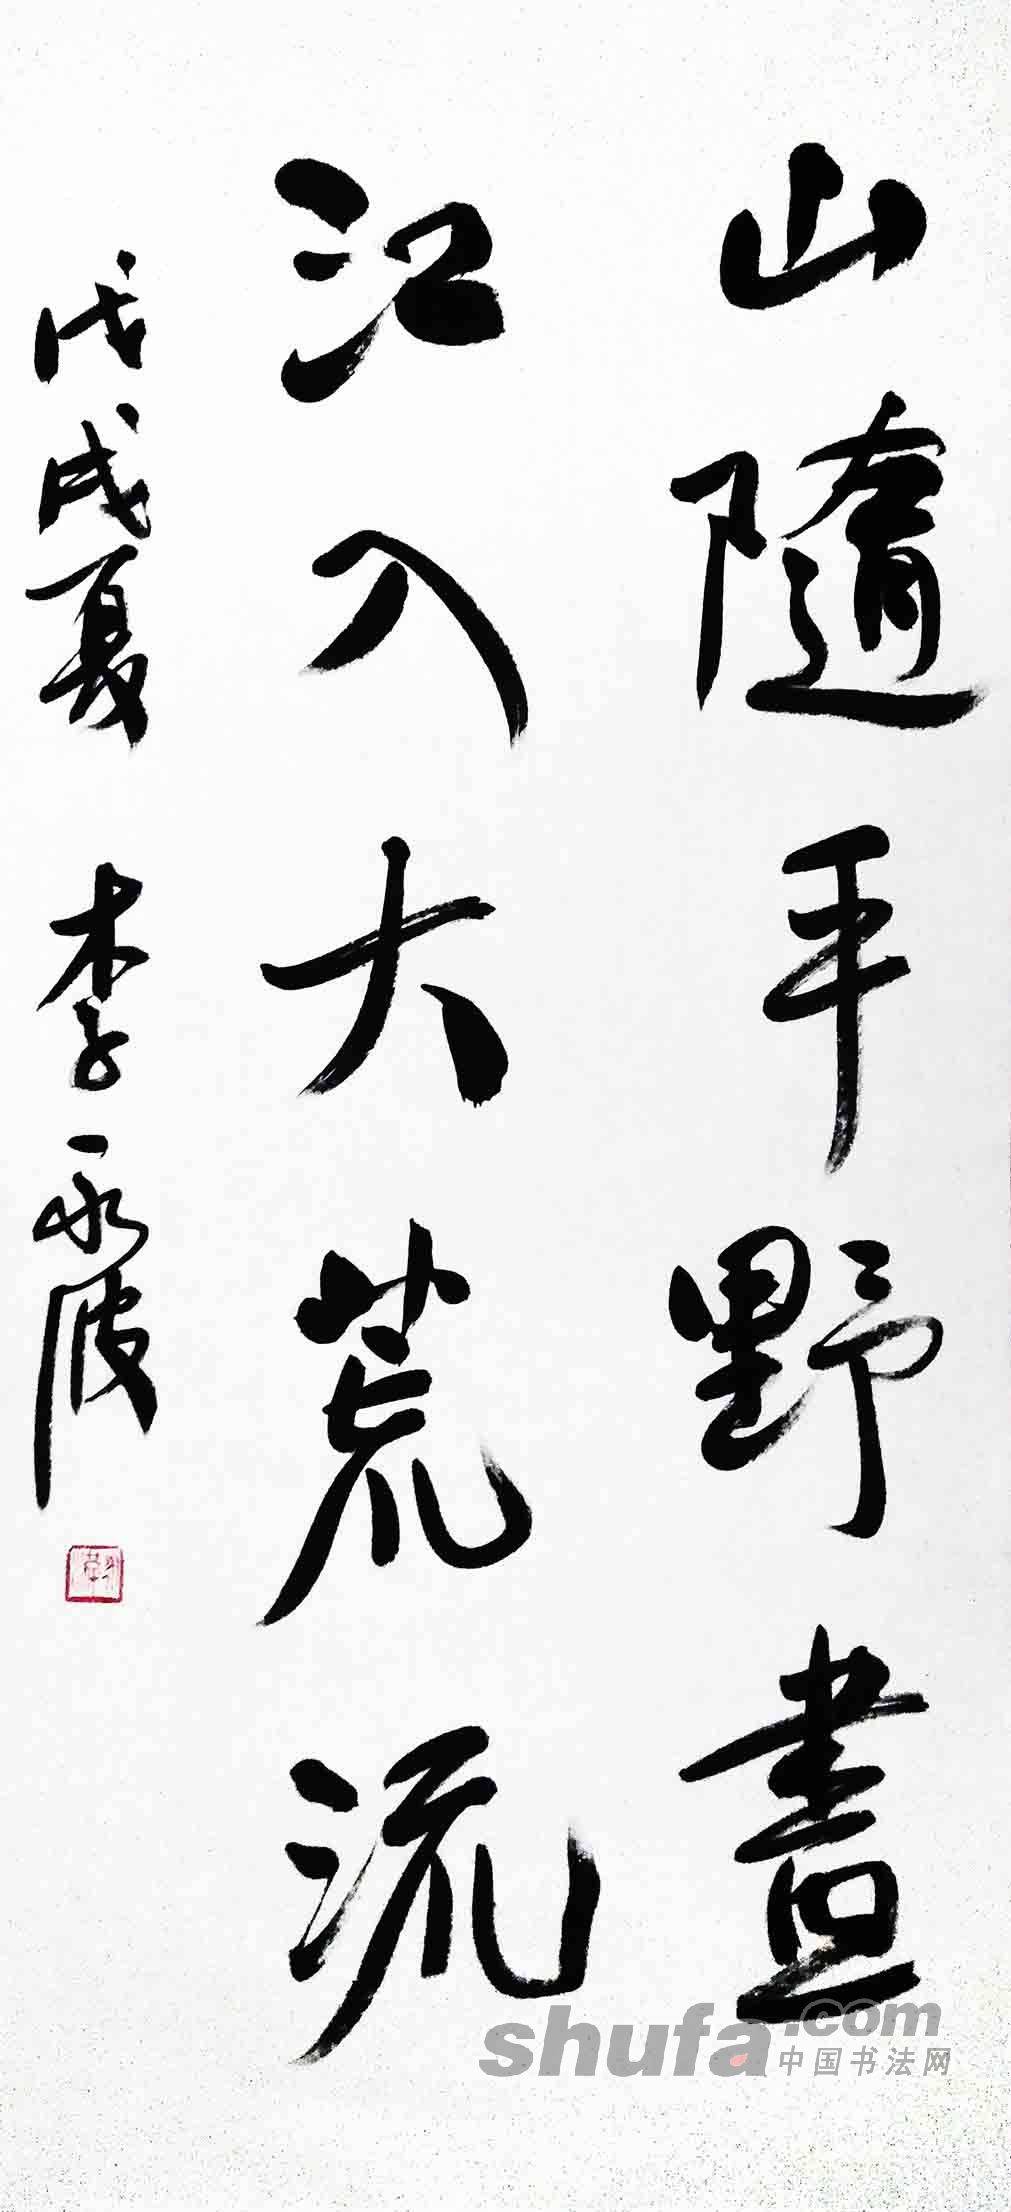 山隨平野盡
江入大荒流
戊戌夏 李永波
shufa.com
中国书法网